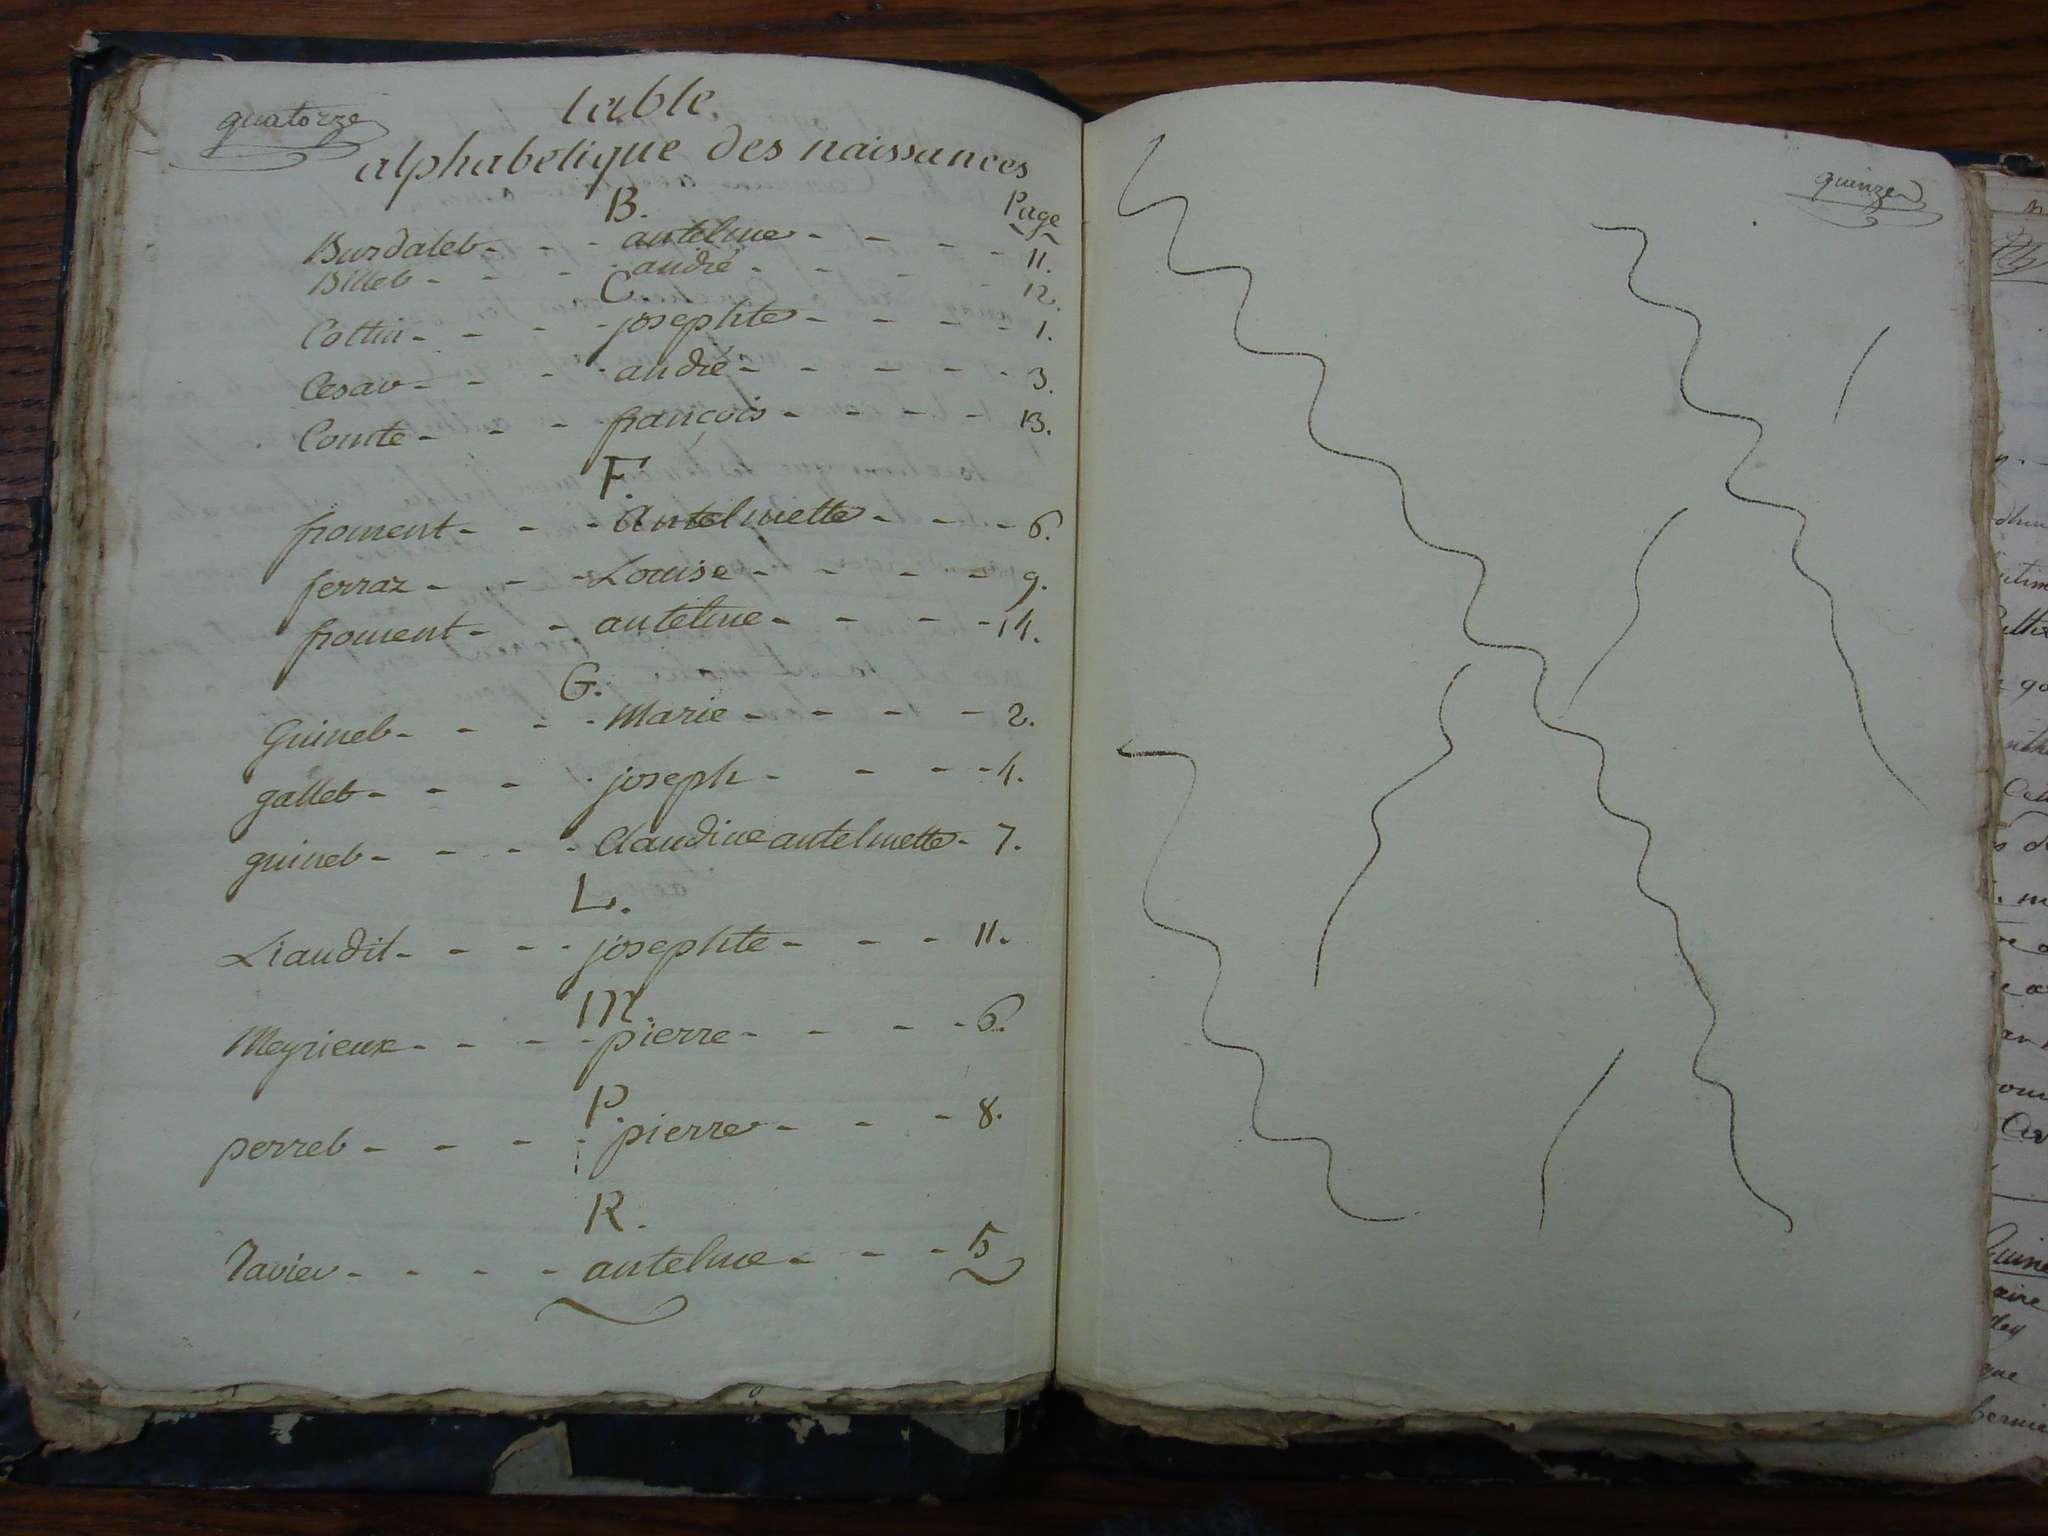 quatorze
table
alphabetique des naissances
B. Page
Burdalet - - - antelme - - - - - 11.
Billet - - - - andré - - - - - 12.
C.
Cottin - - - - josephte - - - - - 1.
Cesar - - - - andré - - - - - 3.
Comte - - - françois - - - - 13.
F.
froment - - - Antelmette - - - 6.
ferraz - - - Louise - - - - - 9.
froment - - antelme - - - - 14.
G.
Guinet - - - - Marie - - - - - 2.
gallet - - - - joseph - - - - 4.
guinet - - - - Claudine antelmette - 7.
L.
Liaudit - - - - josephte - - - 11.
M.
Meyrieux - - - - pierre - - - - 6.
P.
perret - - - - pierre - - - 8.
R.
Ravier - - - - - antelme - - - 5
quinze